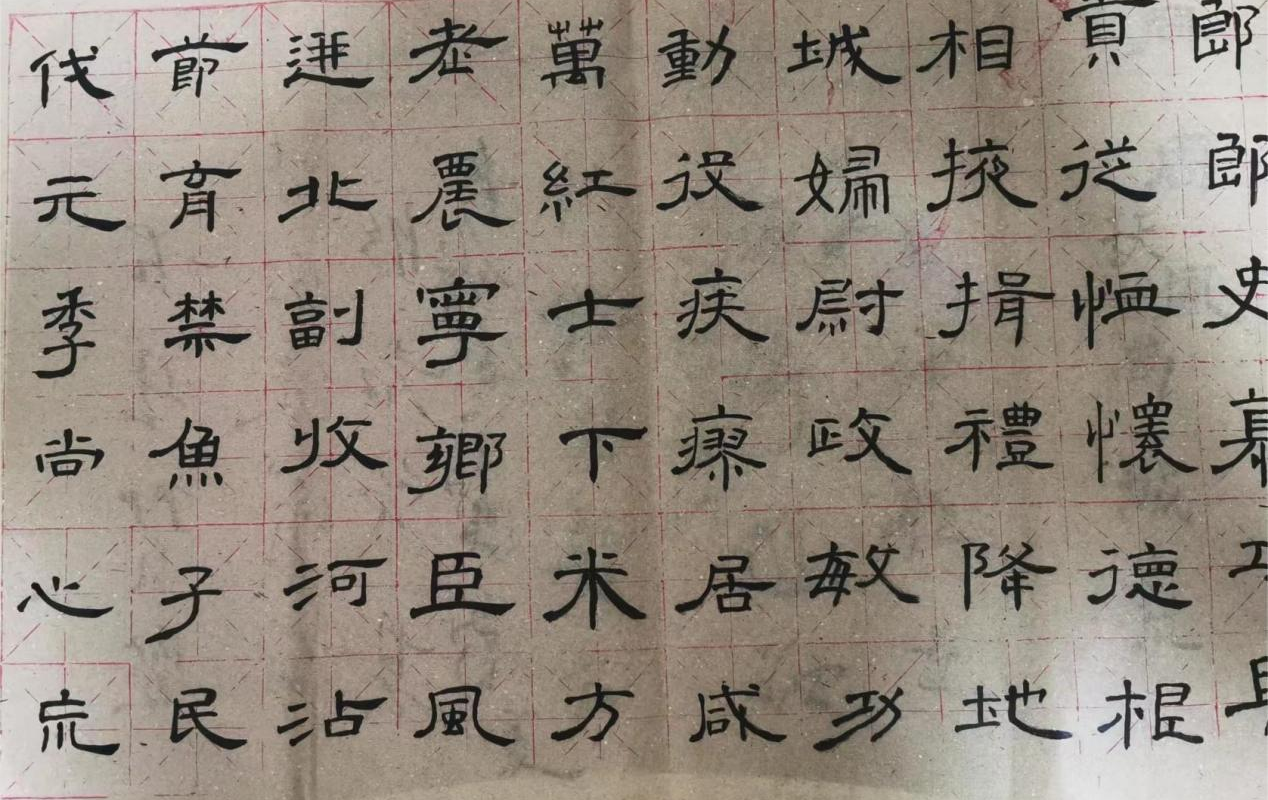 郎郎史
貢從恤懷德根
相掖揖禮降地
城婦尉政敏功
動役疾瘳居咸
萬紅士下米方
老農寧鄉臣風
進北副收河沾
節育禁魚子民
伐元季尚心